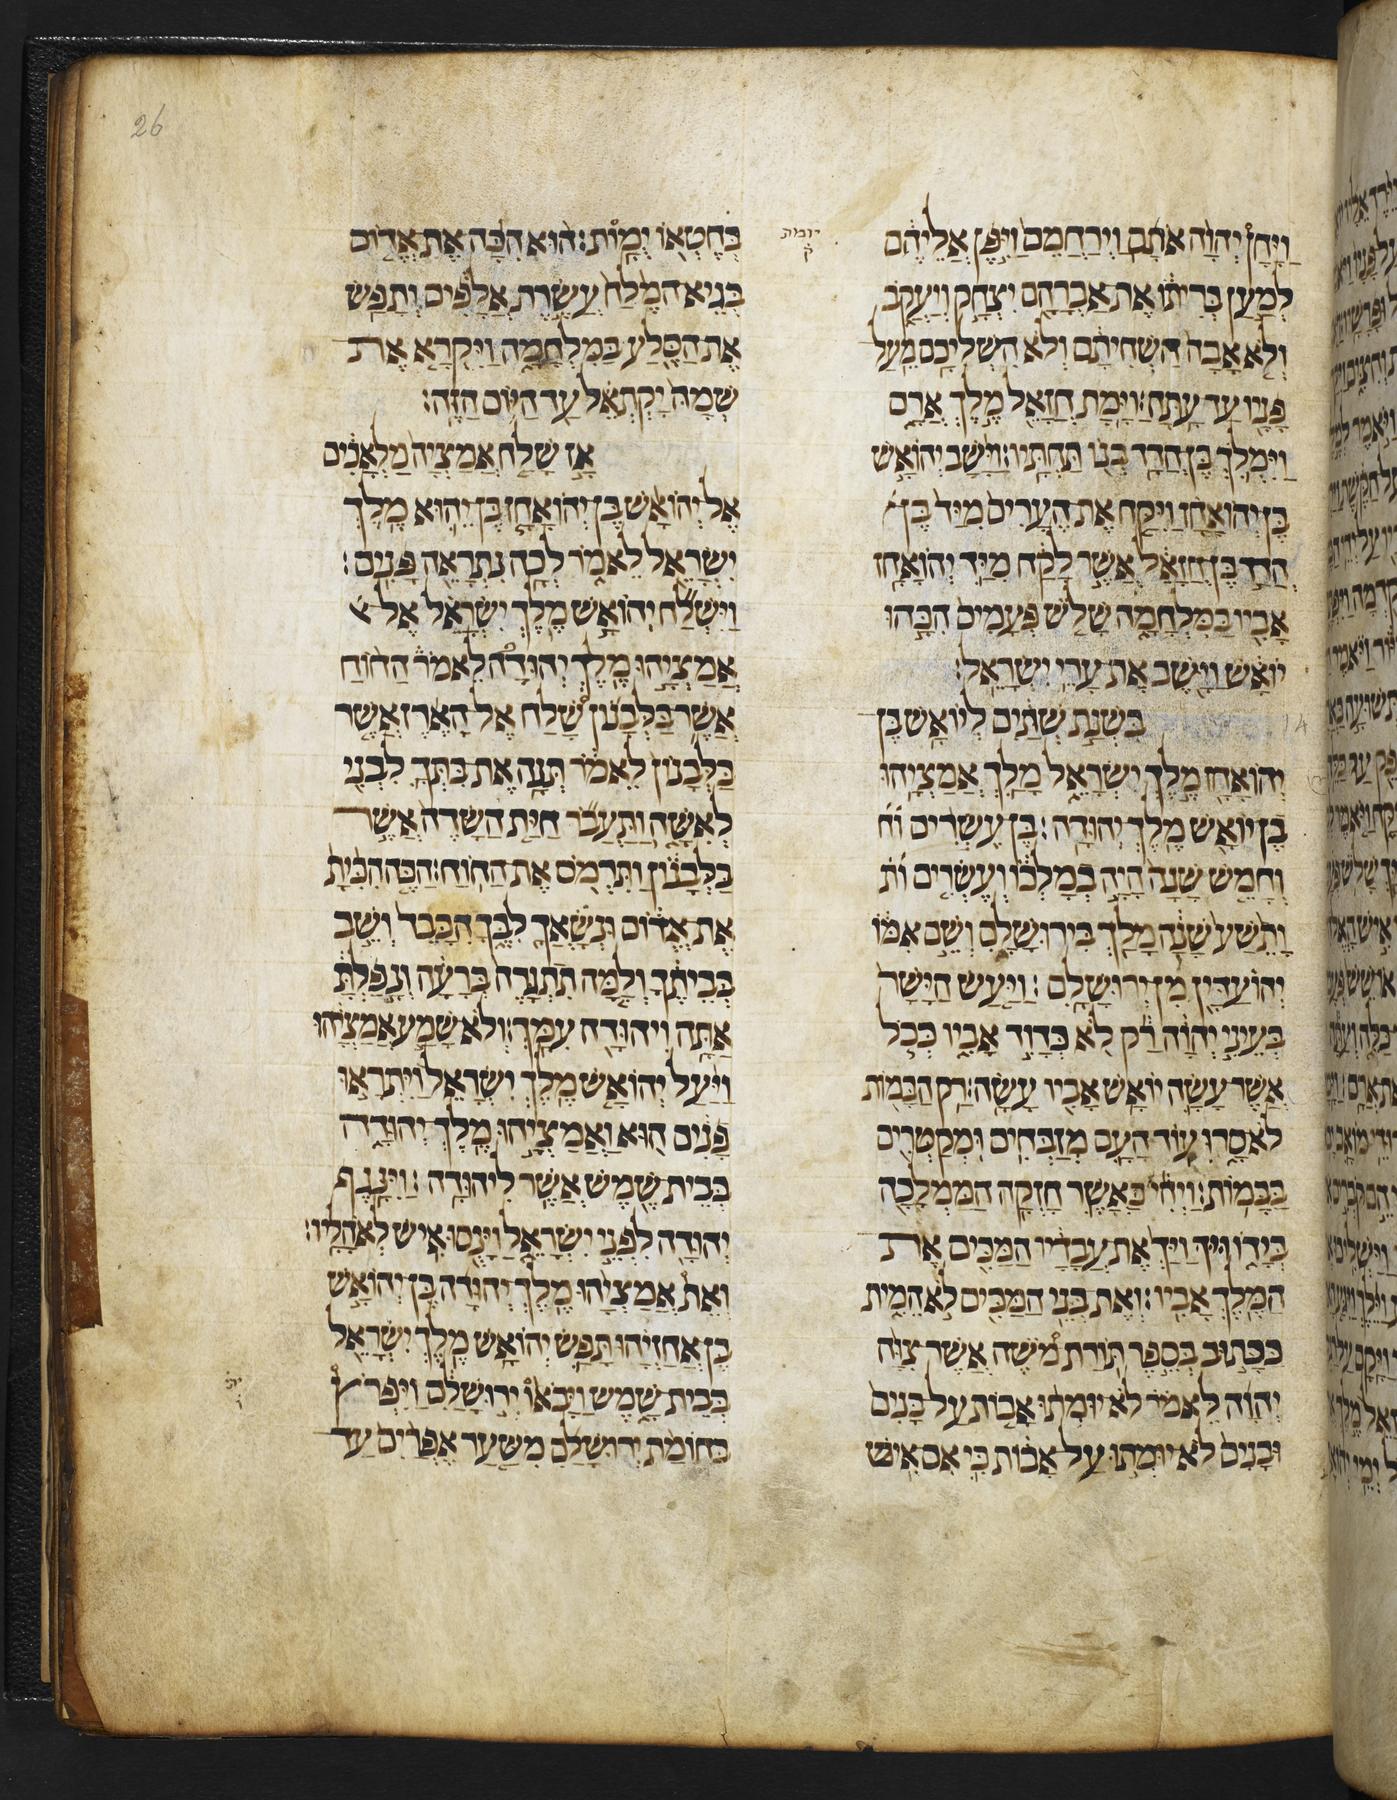 26
וַיָּחָן יְהוָה אֹתָם וַיְרַחֲמֵם וַיִּפֶן אֲלֵיהֶם
לְמַעַן בְּרִיתוֹ אֶת אַבְרָהָם יִצְחָק וְיַעֲקֹב
וְלֹא אָבָה הַשְׁחִיתָם וְלֹא הִשְׁלִיכָם מֵעַל
פָּנָיו עַד עָתָּה׃ וַיָּמָת חֲזָאֵל מֶלֶךְ אֲרָם
וַיִּמְלֹךְ בֶּן הֲדַד בְּנוֹ תַּחְתָּיו׃ וַיָּשָׁב יְהוֹאָשׁ
בֶּן יְהוֹאָחָז וַיִּקַּח אֶת הֶעָרִים מִיַּד בֶּן
הֲדַד בֶּן חֲזָאֵל אֲשֶׁר לָקַח מִיַּד יְהוֹאָחָז
אָבִיו בַּמִּלְחָמָה שָׁלֹשׁ פְּעָמִים הִכָּהוּ
יוֹאָשׁ וַיָּשֶׁב אֶת עָרֵי יִשְׂרָאֵל׃
14 בִּשְׁנַת שְׁתַּיִם לְיוֹאָשׁ בֶּן
יְהוֹאָחָז מֶלֶךְ יִשְׂרָאֵל מָלַךְ אֲמַצְיָהוּ
בֶן יוֹאָשׁ מֶלֶךְ יְהוּדָה׃ בֶּן עֶשְׂרִים וח
וְחָמֵשׁ שָׁנָה הָיָה בְמָלְכוֹ וְעֶשְׂרִים ות
וָתֵשַׁע שָׁנָה מָלַךְ בִּירוּשָׁלִָם וְשֵׁם אִמּוֹ
יְהוֹעַדִּין מִן יְרוּשָׁלִָם׃ וַיַּעַשׂ הַיָּשָׁר
בְּעֵינֵי יְהוָה רַק לֹא כְּדָוִד אָבִיו כְּכֹל
אֲשֶׁר עָשָׂה יוֹאָשׁ אָבִיו עָשָׂה׃ רַק הַבָּמוֹת
לֹא סָרוּ עוֹד הָעָם מְזַבְּחִים וּמְקַטְּרִים
בַּבָּמוֹת׃ וַיְהִי כַּאֲשֶׁר חָזְקָה הַמַּמְלָכָה
בְּיָדוֹ וַיַּךְ אֶת עֲבָדָיו הַמַּכִּים אֶת
הַמֶּלֶךְ אָבִיו׃ וְאֶת בְּנֵי הַמַּכִּים לֹא הֵמִית
כַּכָּתוּב בְּסֵפֶר תּוֹרַת מֹשֶׁה אֲשֶׁר צִוָּה
יְהוָה לֵאמֹר לֹא יוּמְתוּ אָבוֹת עַל בָּנִים
וּבָנִים לֹא יוּמְתוּ עַל אָבוֹת כִּי אִם אִישׁ
יומת
ק
בְּחֶטְאוֹ יָמוּת׃ הוּא הִכָּה אֶת אֱדוֹם
בְּגֵיא הַמֶּלַח עֲשֶׂרֶת אֲלָפִים וְתָפַשׂ
אֶת הַסֶּלַע בַּמִּלְחָמָה וַיִּקְרָא אֶת
שְׁמָהּ יָקְתְאֵל עַד הַיּוֹם הַזֶּה׃
אָז שָׁלַח אֲמַצְיָה מַלְאָכִים
אֶל יְהוֹאָשׁ בֶּן יְהוֹאָחָז בֶּן יֵהוּא מֶלֶךְ
יִשְׂרָאֵל לֵאמֹר לְכָה נִתְרָאֶה פָנִים׃
וַיִּשְׁלַח יְהוֹאָשׁ מֶלֶךְ יִשְׂרָאֵל אֶל
אֲמַצְיָהוּ מֶלֶךְ יְהוּדָה לֵאמֹר הַחוֹחַ
אֲשֶׁר בַּלְּבָנוֹן שָׁלַח אֶל הָאֶרֶז אֲשֶׁר
בַּלְּבָנוֹן לֵאמֹר תְּנָה אֶת בִּתְּךָ לִבְנִי
לְאִשָּׁה וַתַּעֲבֹר חַיַּת הַשָּׂדֶה אֲשֶׁר
בַּלְּבָנוֹן וַתִּרְמֹס אֶת הַחוֹחַ׃ הַכֵּה הִכִּיתָ
אֶת אֱדוֹם וּנְשָׂאֲךָ לִבֶּךָ הִכָּבֵד וְשֵׁב
בְּבֵיתֶךָ וְלָמָּה תִתְגָּרֶה בְּרָעָה וְנָפַלְתָּה
אַתָּה וִיהוּדָה עִמָּךְ׃ וְלֹא שָׁמַע אֲמַצְיָהוּ
וַיַּעַל יְהוֹאָשׁ מֶלֶךְ יִשְׂרָאֵל וַיִּתְרָאוּ
פָנִים הוּא וַאֲמַצְיָהוּ מֶלֶךְ יְהוּדָה
בְּבֵית שֶׁמֶשׁ אֲשֶׁר לִיהוּדָה׃ וַיִּנָּגֶף
יְהוּדָה לִפְנֵי יִשְׂרָאֵל וַיָּנֻסוּ אִישׁ לְאֹהָלָיו׃
וְאֵת אֲמַצְיָהוּ מֶלֶךְ יְהוּדָה בֶּן יְהוֹאָשׁ
בֶּן אֲחַזְיָהוּ תָּפַשׂ יְהוֹאָשׁ מֶלֶךְ יִשְׂרָאֵל
בְּבֵית שָׁמֶשׁ וַיָּבֹאוּ יְרוּשָׁלִַם וַיִּפְרֹץ
בְּחוֹמַת יְרוּשָׁלִַם מִשַּׁעַר אֶפְרַיִם עַד